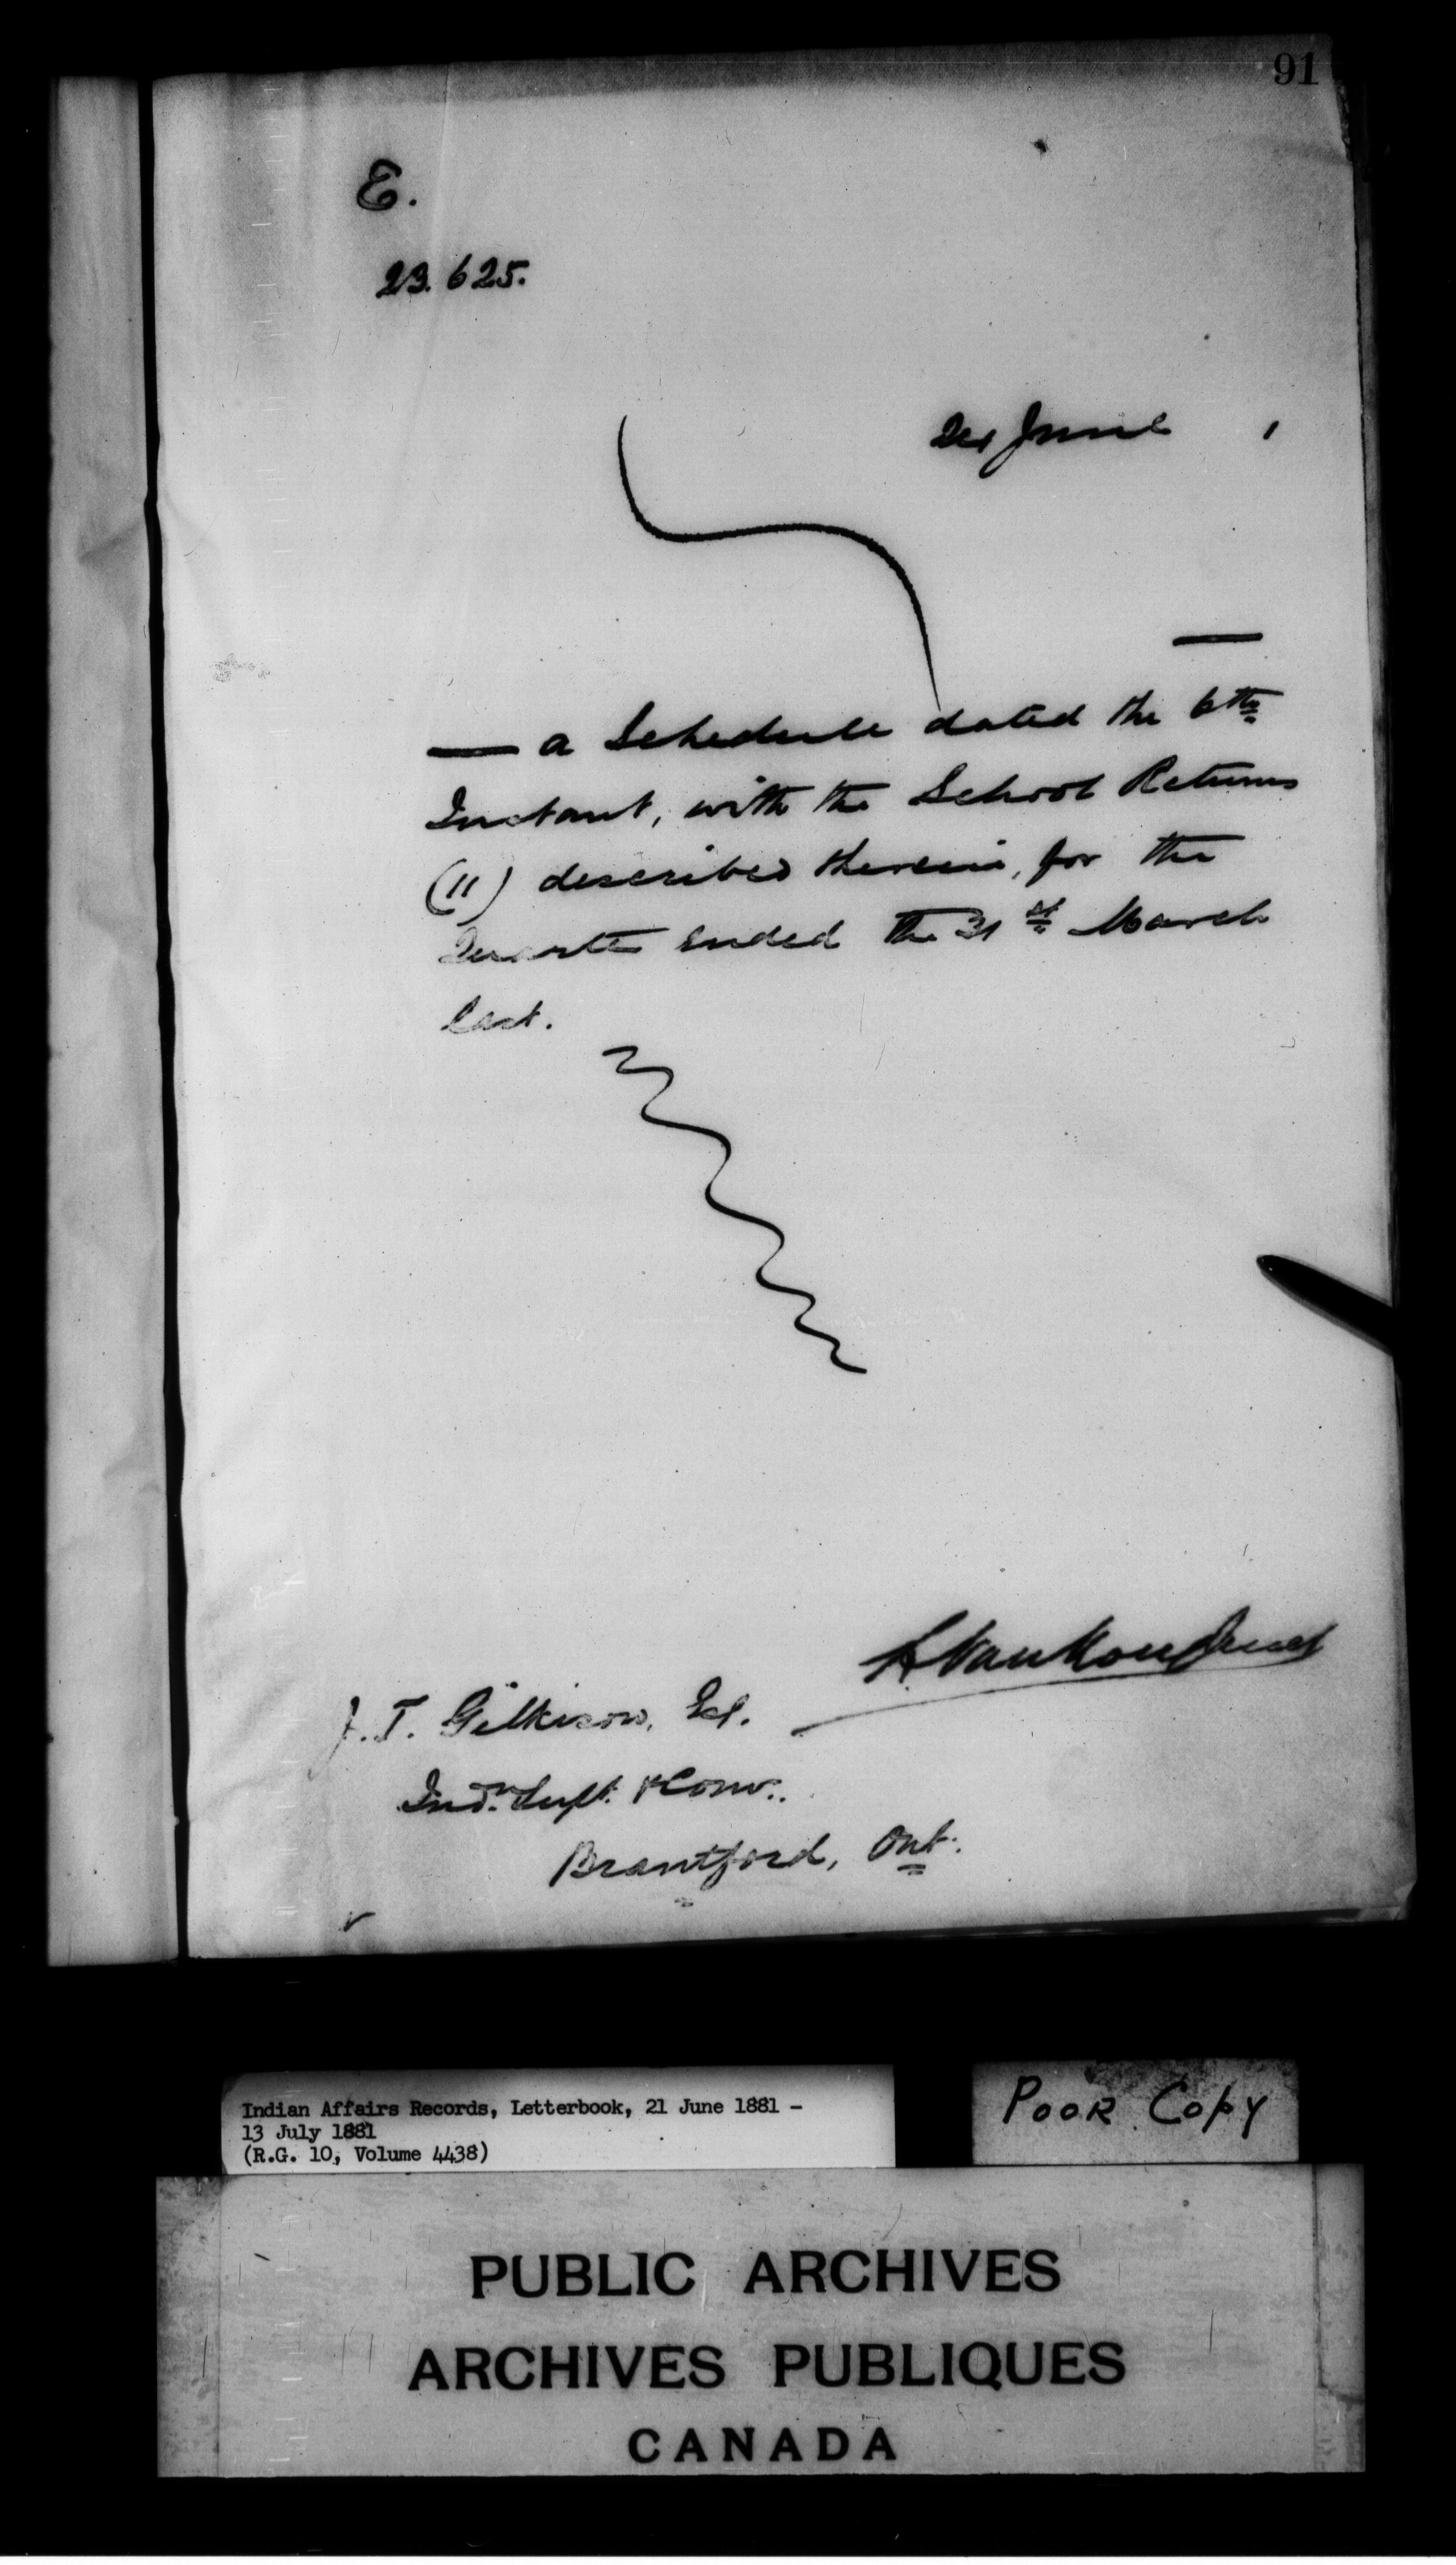 91
E.
23.625.
June 1
— a Schedule dated the 6th
Instant, with the School Returns
(11) described therein, for the
Quarter ended the 31st March
last.
L VanKoughnet
J. T. Gilkison, Esq.
Indn. Supt. & Comr.
Brantford, Ont.
Indian Affairs Records, Letterbook, 21 June 1881 –
13 July 1881
(R.G. 10, Volume 4438)
POOR COPY
PUBLIC ARCHIVES
ARCHIVES PUBLIQUES
CANADA